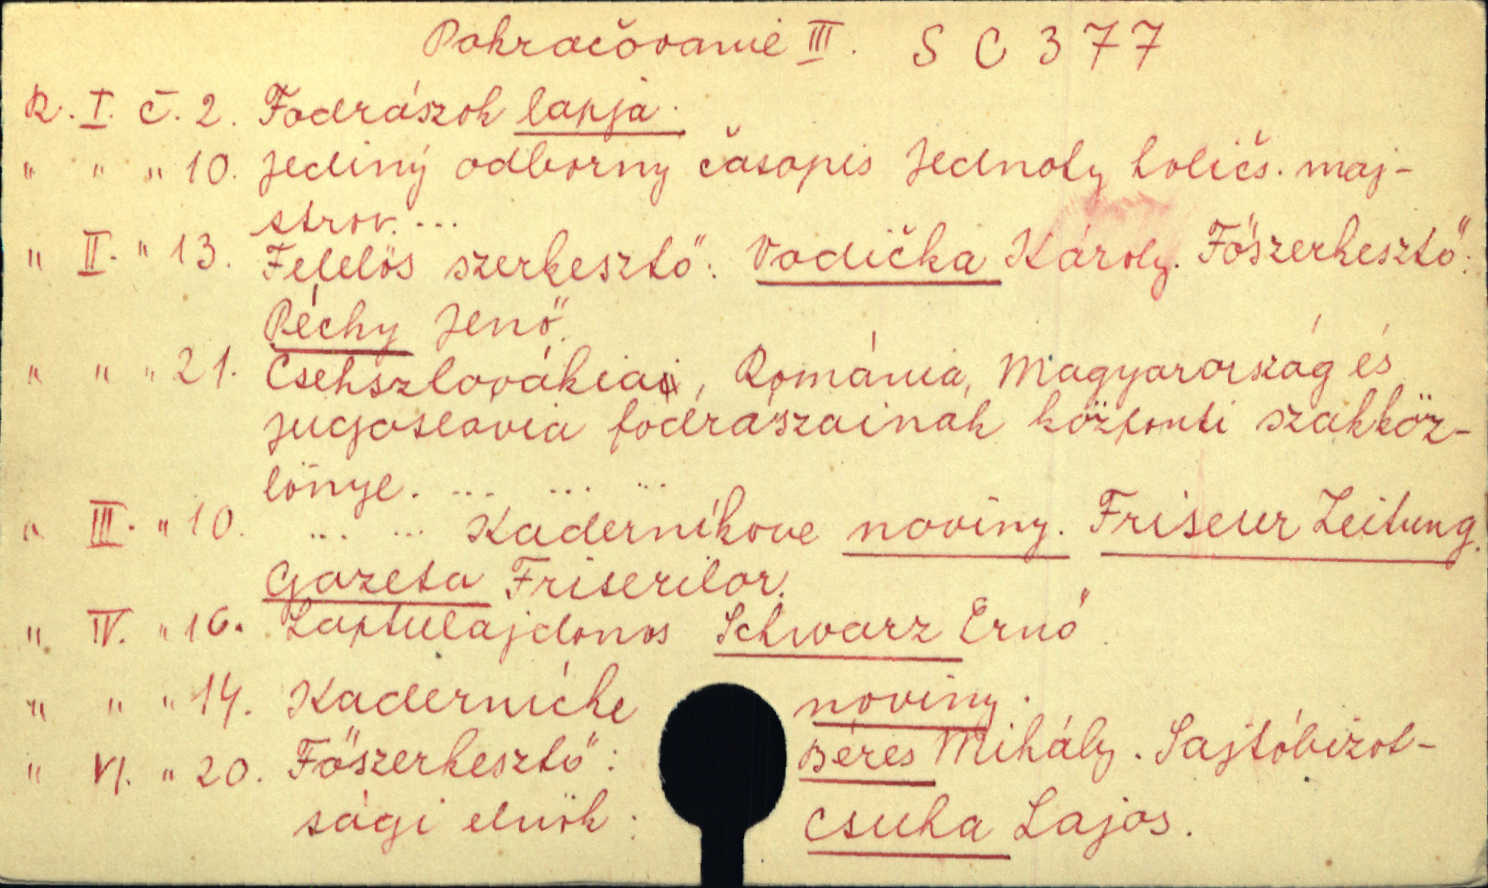 Pokračovanie III. S C 377
R. I. č. 2. Fodrászok lapja.
" " " 10. Jediný odborny časopis Jednoty holičs. maj-
strov. ...
" II. " 13. Felelős szerkesztő: Vodička Károly. Főszerkesztő:
Péchy Jenő.
" " " 21. Csehszlovákiai, Románia, Magyarország és
Jugoslavia fodrászainak központi szakköz-
lönye. ... ... ...
" III. " 10. ... ... Kaderníkove noviny. Friseur Zeitung.
Gazeta Friserilor.
" IV. " 16. Laptulajdonos Schwarz Ernő.
" " " 14. Kadernícke noviny.
" VI. " 20. Főszerkesztő: Béres Mihály. Sajtóbizot-
sági elnök: Csuka Lajos.